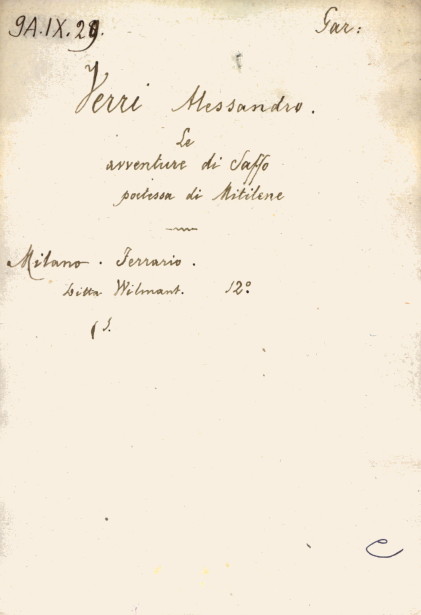 9A.IX.29. Gar:
Verri Alessandro.
Le
avventure di Saffo
poetessa di Mitilene
Milano. Ferrario.
Ditta Wilmant. 12°